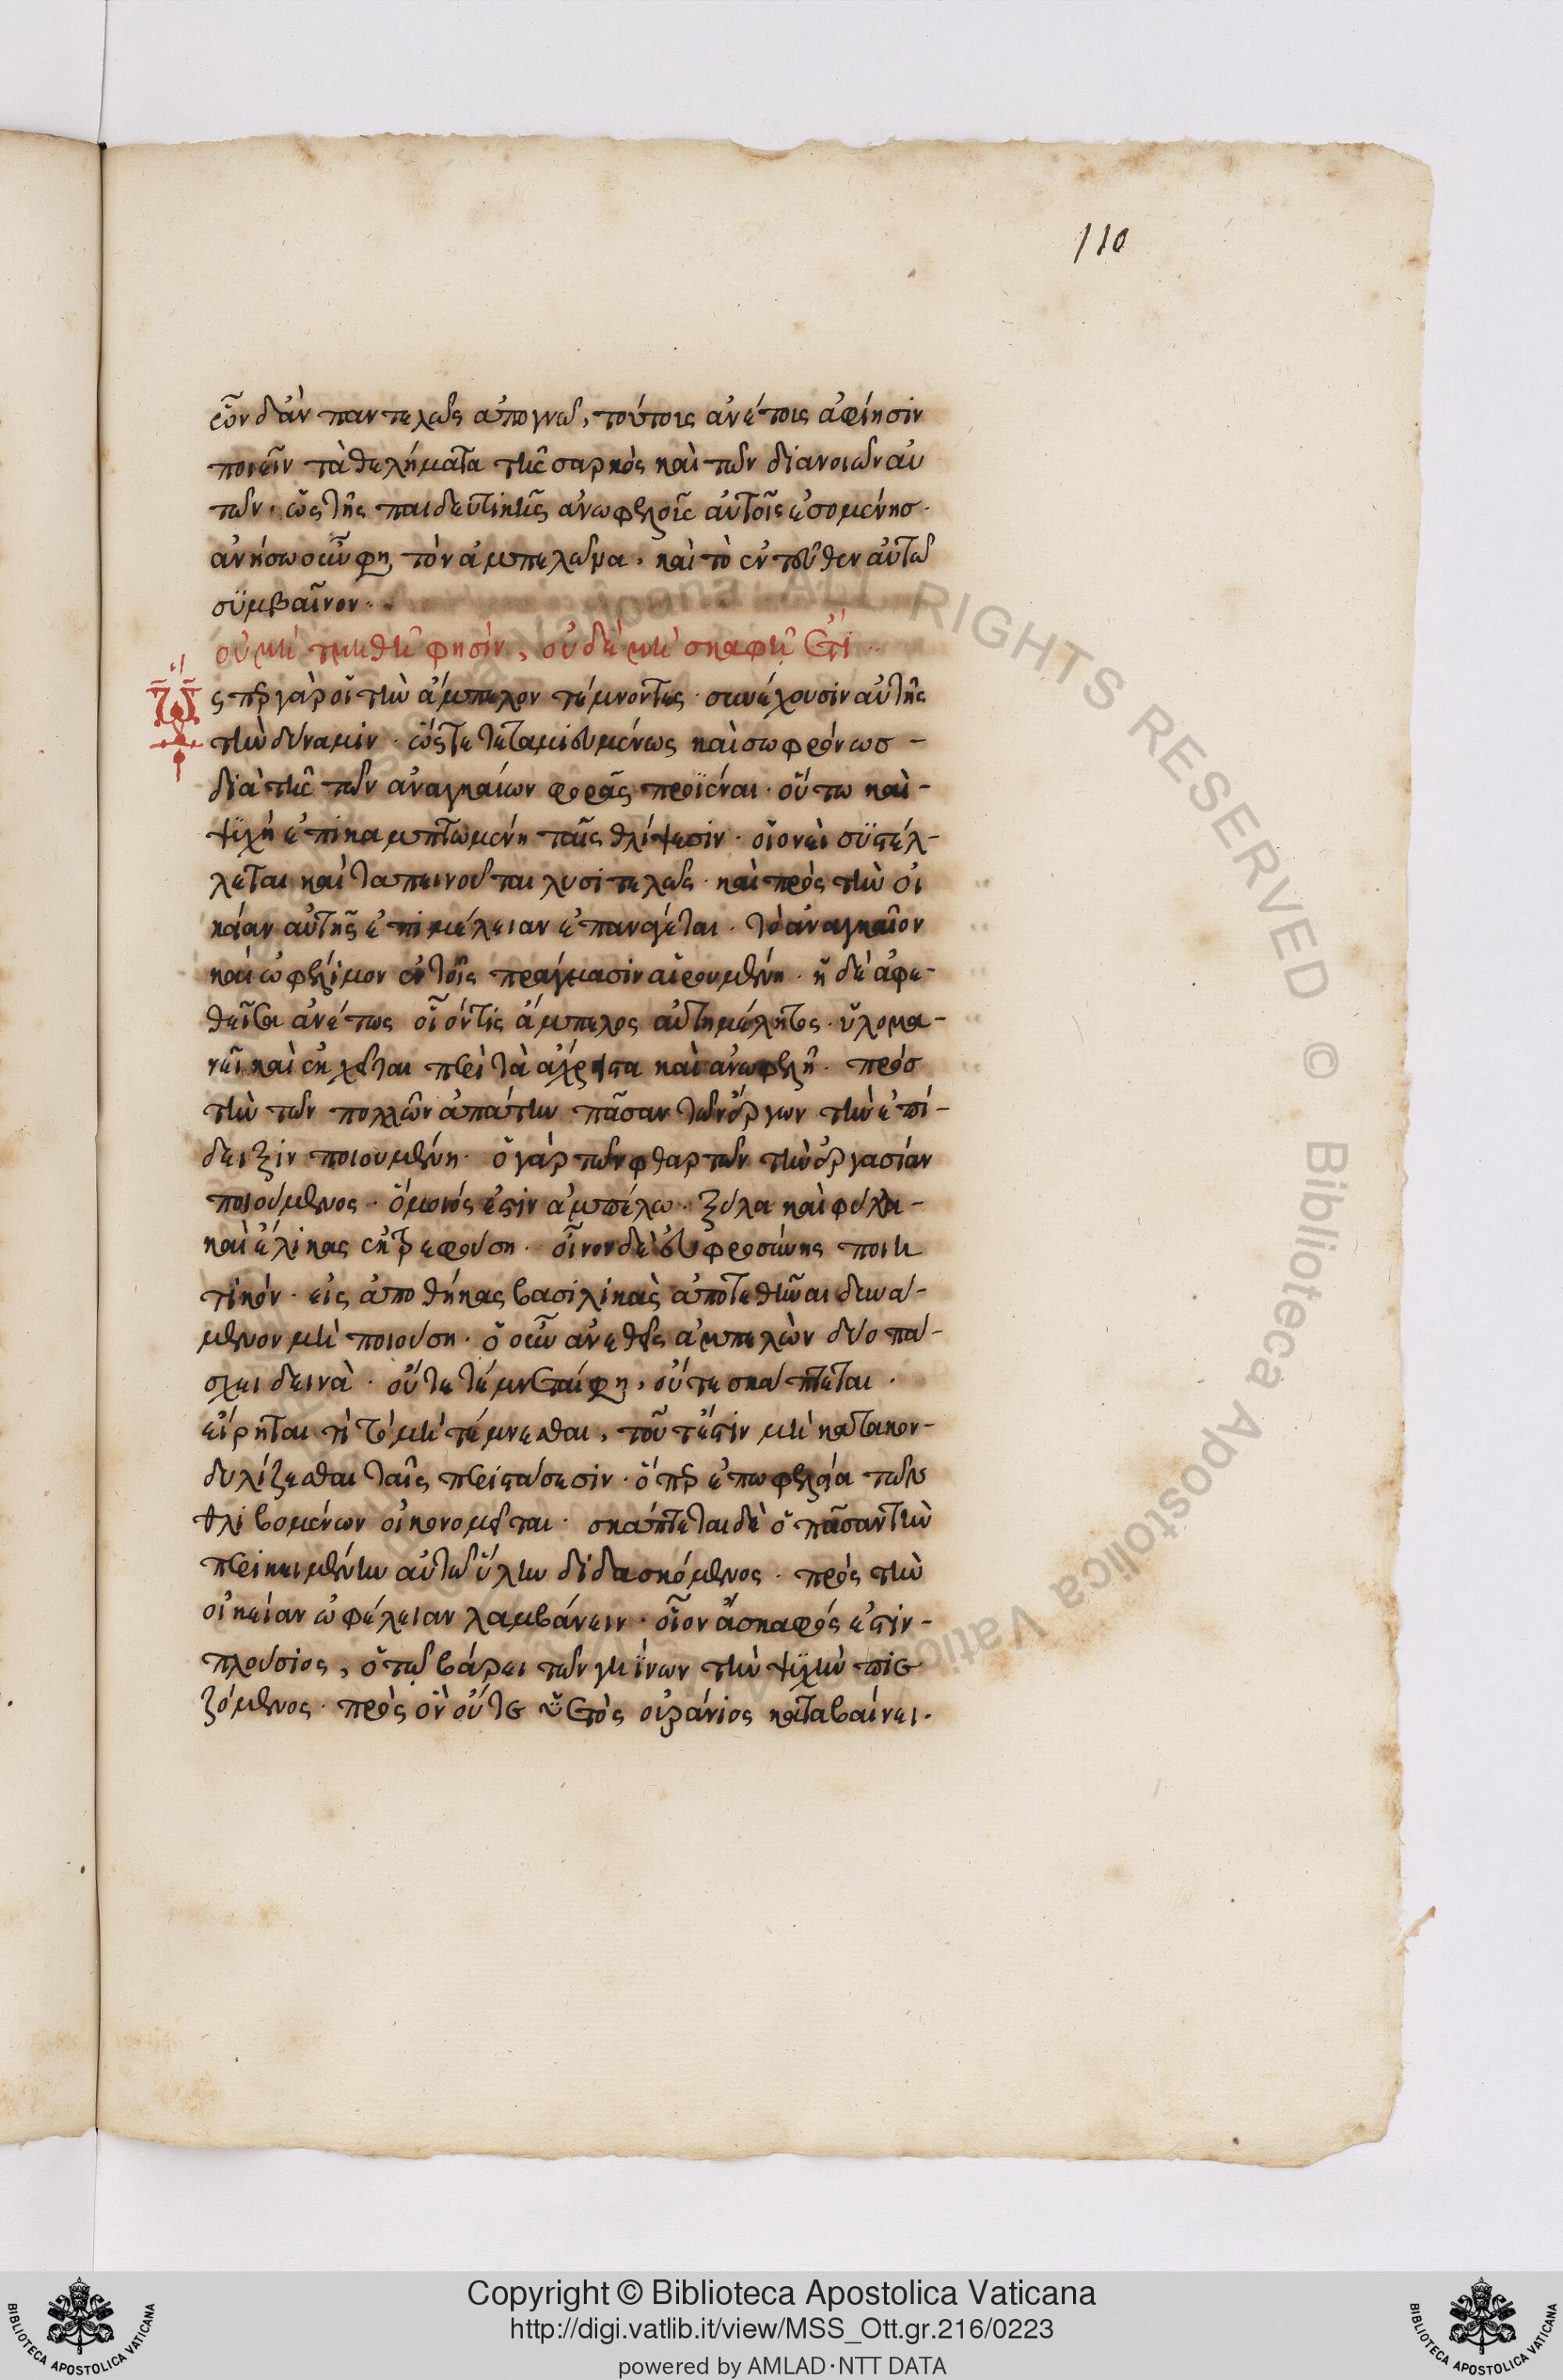 110
ὧν δ' ἂν παντελῶς ἀπογνῶ, τούτοις ἀνέτοις ἀφίησιν
ποιεῖν τὰ θελήματα τῆς σαρκὸς καὶ τῶν διανοιῶν αὐ
τῶν· ὡς τῆς παιδευτικῆς ἀνωφελοῦς αὐτοῖς ἐσομένησ·
ἀνήσω οὖν φη τὸν ἀμπελῶνα, καὶ τὸ ἐντεῦθεν αὐτῶ
συμβαῖνον·
οὐ μὴ τμηθῆ φησὶν, οὐδὲ μὴ σκαφῆ ἔτι
ὥ
ςπερ γὰρ οἱ τὴν ἄμπελον τέμνοντες· συνέχουσιν αὐτῆς
τὴν δύναμιν· ὥστε τεταμιευμένως καὶ σωφρόνωσ -
διὰ τῆς τῶν ἀναγκαίων φορᾶς προϊέναι· οὕτω καὶ -
ψυχὴ ἐπικαμπτωμένη ταῖς θλίψεσιν· οἱονεὶ συστέλ-
λεται καὶ ταπεινοῦται λυσιτελῶς· καὶ πρὸς τὴν οἰ
κείαν αὐτῆς ἐπιμέλειαν ἐπανάγεται· τὸ ἀναγκαῖον
καὶ ὠφέλιμον ἐν τοῖς πράγμασιν αἱρουμένη· ἡ δὲ ἀφε-
θεῖσα ἀνέτως οἷόν τις ἄμπελος ἀτημέλητος· ὑλομα-
νεῖ καὶ ἐκχεῖται περὶ τὰ ἄχρηστα καὶ ἀνωφελῆ· πρόσ
τὴν τῶν πολλῶν ἀπάτην πᾶσαν τῶν ἔργων τὴν ἐπί-
δειξιν ποιουμένη· ὁ γὰρ τῶν φθαρτῶν τὴν ἐργασίαν
ποιούμενος· ὅμοιός ἐστιν ἀμπέλω· ξύλα καὶ φύλλα -
καὶ ἕλικας ἐκτρεφούση· οἶνον δὲ εὐφροσύνης ποιη
τικόν· εἰς ἀποθήκας βασιλικὰς ἀποτεθῆναι δυνά-
μενον μὴ ποιούση· ὁ οὖν ἀνεθεὶς ἀμπελὼν δύο πά-
σχει δεινὰ· οὔτε τέμνεταί φη, οὔτε σκάπτεται·
εἴρηται τί τὸ μὴ τέμνεσθαι, τοῦτέστιν μὴ κατακον-
δυλίζεσθαι ταῖς περιστάσεσιν· ὅπερ ἐπωφελεία τῶν
θλιβομένων οἰκονομεῖται· σκάπτεται δὲ ὁ πᾶσαν τὴν
περικειμένην αὐτῶ ὕλην διδασκόμενος· πρὸς τὴν
οἰκείαν ὠφέλειαν λαμβάνειν· οἷον ἄσκαφός ἐστιν -
πλούσιος, ὁ τῶ βάρει τῶν γηΐνων τὴν ψυχὴν πιε
ζόμενος· πρὸς ὃν οὔτε ὑετὸς οὐράνιος καταβαίνει·
Copyright © Biblioteca Apostolica Vaticana
http://digi.vatlib.it/view/MSS_Ott.gr.216/0223
powered by AMLAD·NTT DATA